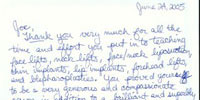 June 24, 2005
Joe,
Thank you very much for all the
time and effort you put into teaching
face lifts, neck lifts, face/neck liposuction,
chin implants, lip implants, forehead lifts,
and blepharoplasties. You proved yourself
to be a very generous and compassionate
in addition to a brilliant and superbly